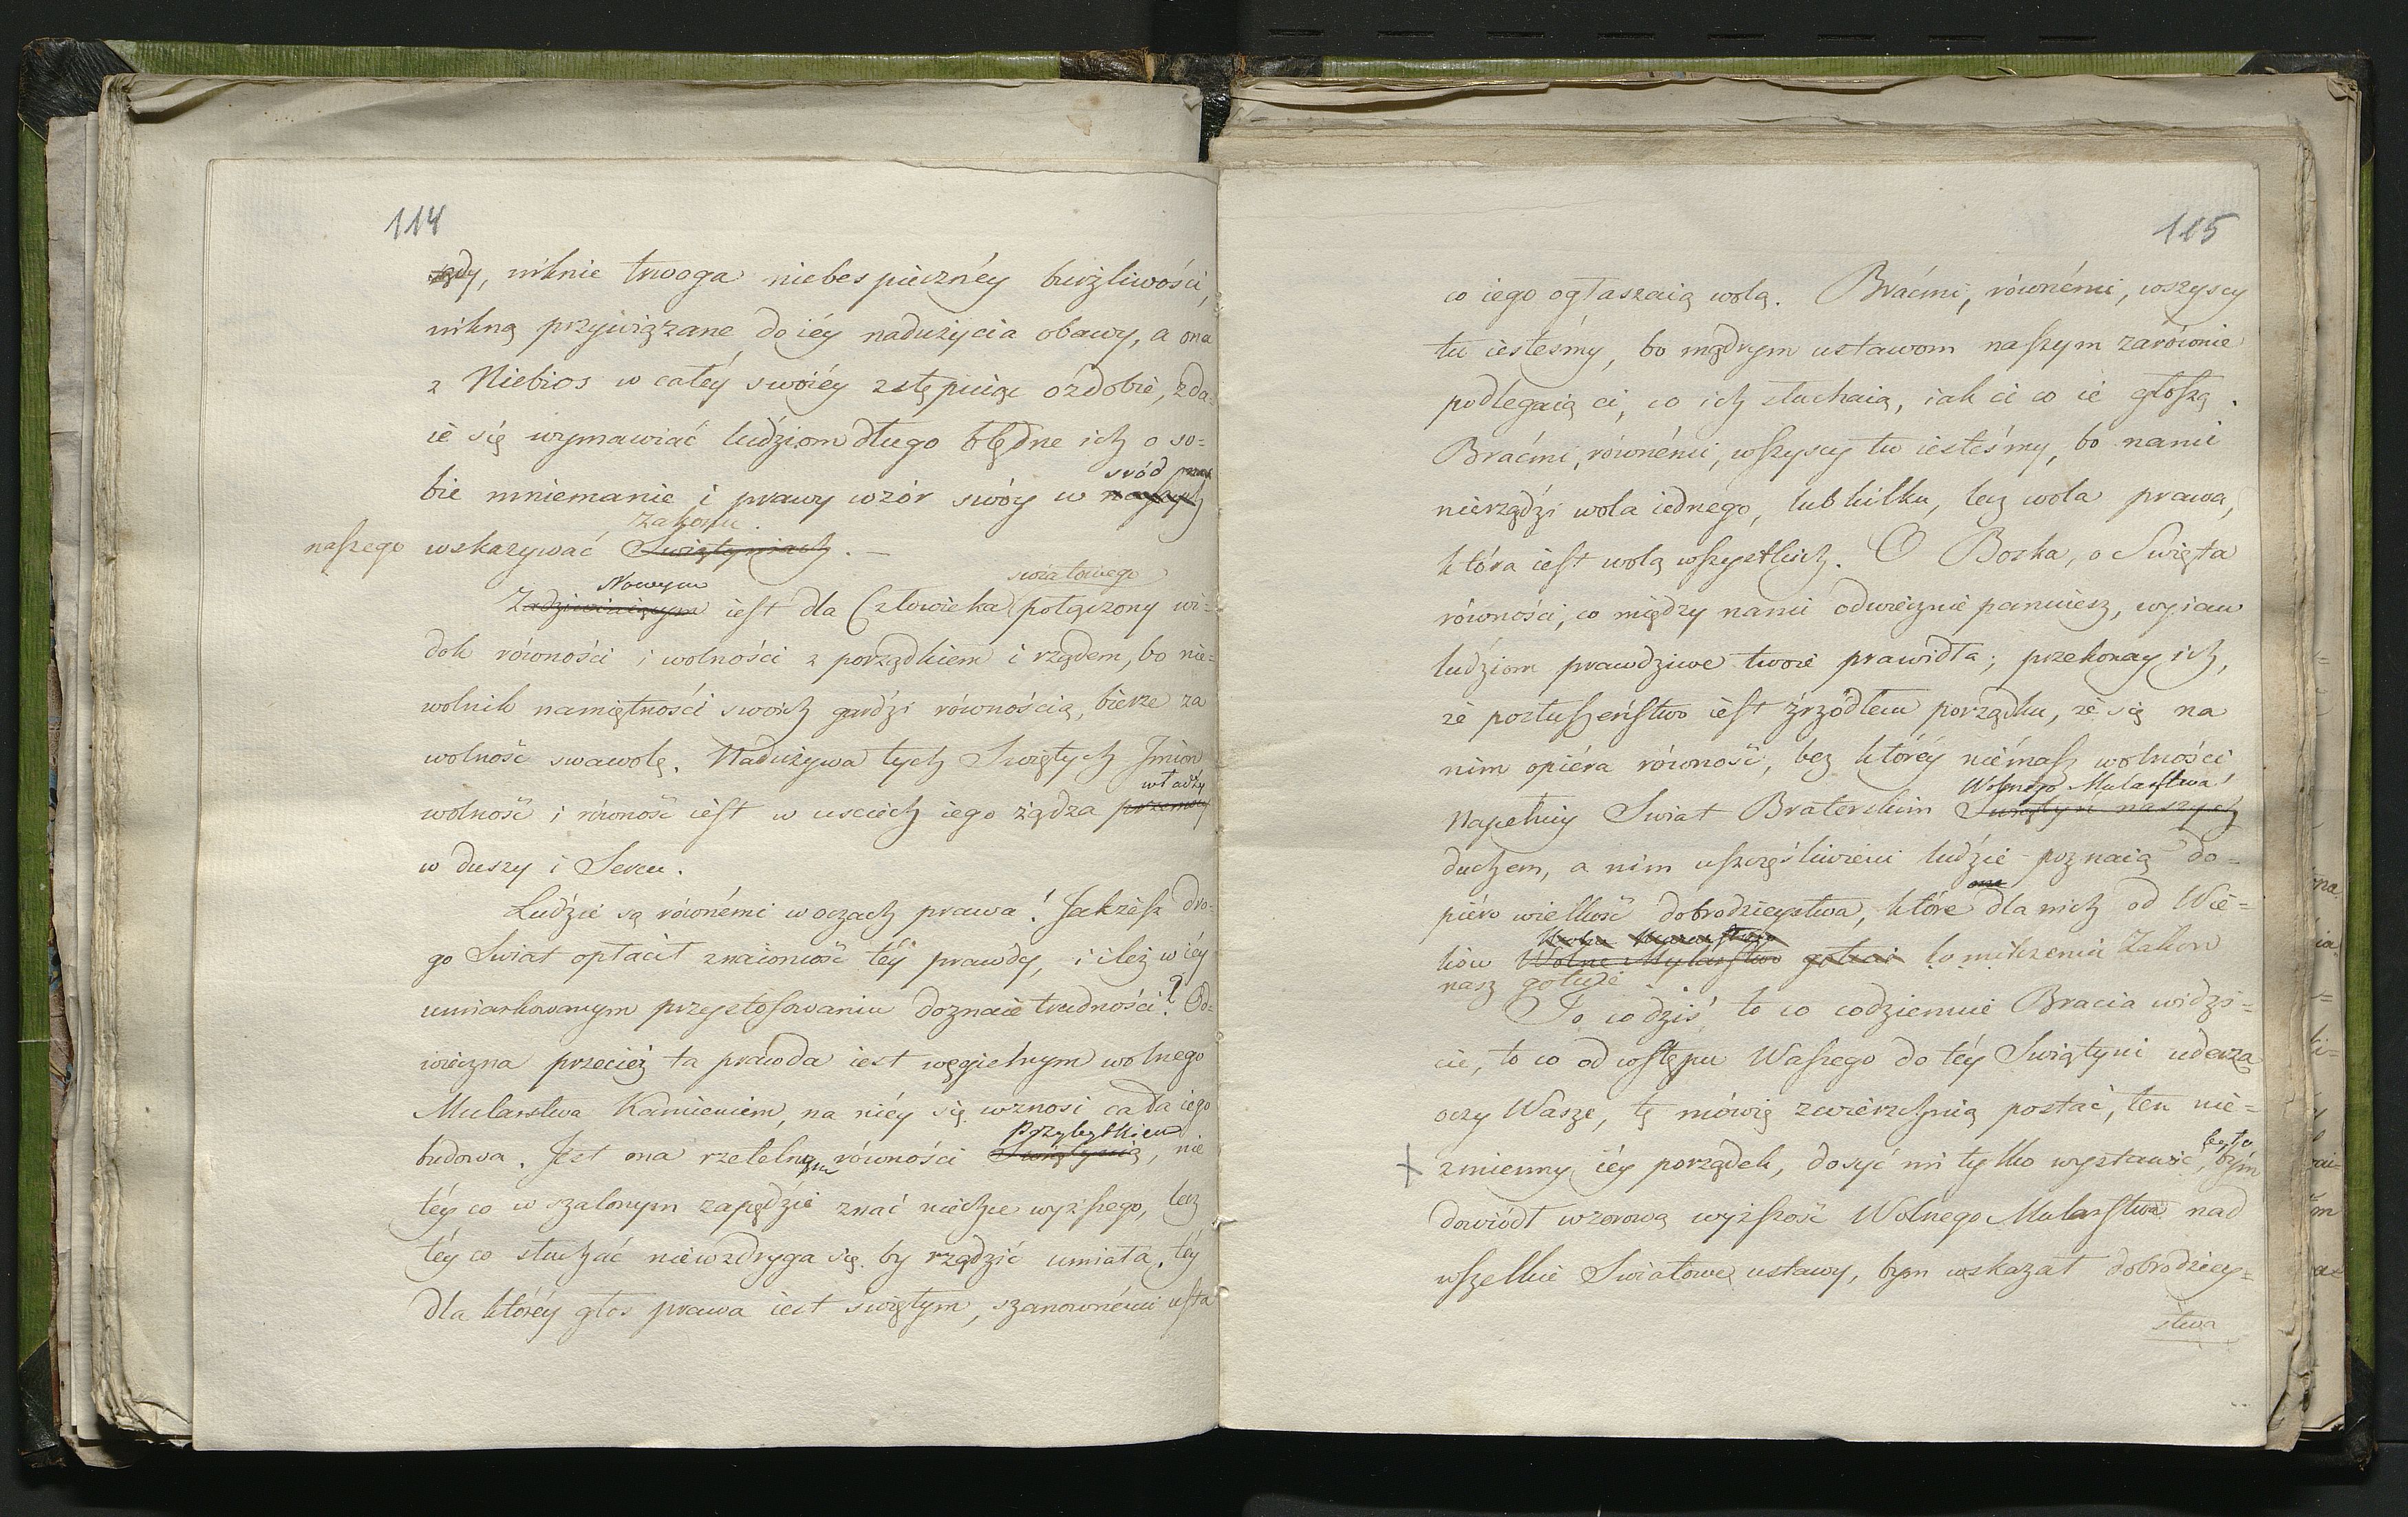 114
niknie trwoga niebespiecznéy burżliwości,
nikną przywiązane do iéy nadużycia obawy, a ona
z Niebios w całéy swoiéy zstępuiąc ozdobie, zda=
ie się wymawiać ludziom długo błędne ich o so=
śród prac
bie mniemanie i prawy wzór swóy w naszych
Zakonu.
naszego wskazywać Świątyniach. —
Nowym światowego
Zadziwiaiącym iest dla Człowieka połączony wi=
dok równości i wolności z porządkiem i rządem, bo nie=
wolnik namiętności swoich gardzi równością, bierze za
wolność swawolę. Nadużywa tych Świętych Jmion
władzy
wolność i równość iest w uściech iego żądza przemocy
w duszy i Sercu.
Ludzie są równémi w oczach prawa! Jakżesz dro=
go Świat opłacił znaiomość téy prawdy, i ileż w iéy
umiarkowanym przystosowaniu doznaie trudności? Od=
wieczna przecież ta prawda iest węgielnym wolnego
Mularstwa Kamieniem, na niéy się wznosi cała iego
Przybytkiem
budowa. Jest ona rzetelnym równości Świątynią, nie
téy co w szalonym zapędzie znać niechce wyższego, lecz
téy co słuchać niewzdryga się by rządzić umiała, téy
dla któréy głos prawa iest świętym, szanownémi usta
115
co iego ogłaszaią wolą. Braćmi, równémi, wszyscy
tu iesteśmy, bo mądrym ustawom naszym zarównie
podlegaią ci, co ich słuchaią, iak ci co ie głoszą.
Braćmi, równémi, wszyscy tu iesteśmy, bo nami
nierządzi wola iednego, lub kilku, lecz wola prawa,
która iest wolą wszystkich. O Boska, o Święta
równości, co między nami odwiecznie panuiesz, wyiaw
ludziom prawdziwe twoie prawidła; przekonay ich,
że posłuszeństwo iest źrzódłem porządku, że się na
nim opiéra równość, bez któréy niémasz wolności
Wolnego Mularstwa
Napełniy Świat Braterskim Świątyń naszych
duchem, a nim uszczęśliwieni ludzie poznaią do=
one
piéro wielkość dobrodzieystwa, które dla nich od Wie=
ków Wolne Mylarstwo gotuie w milczeniu Zakon
nasz gotuie
To co dziś to co codziennie Bracia widzi=
cie, to co od wstępu Waszego do téy Świątyni uderza
oczy Wasze, tę mówię zwierzchnią postać, ten nie=
było
+ zmienny iéy porządek, dosyć mi tylko wystawić, bym
dowiódł wzorową wyższość Wolnego Mularstwa nad
wszelkie Światowe ustawy, bym wskazał dobrodziey=
stwa